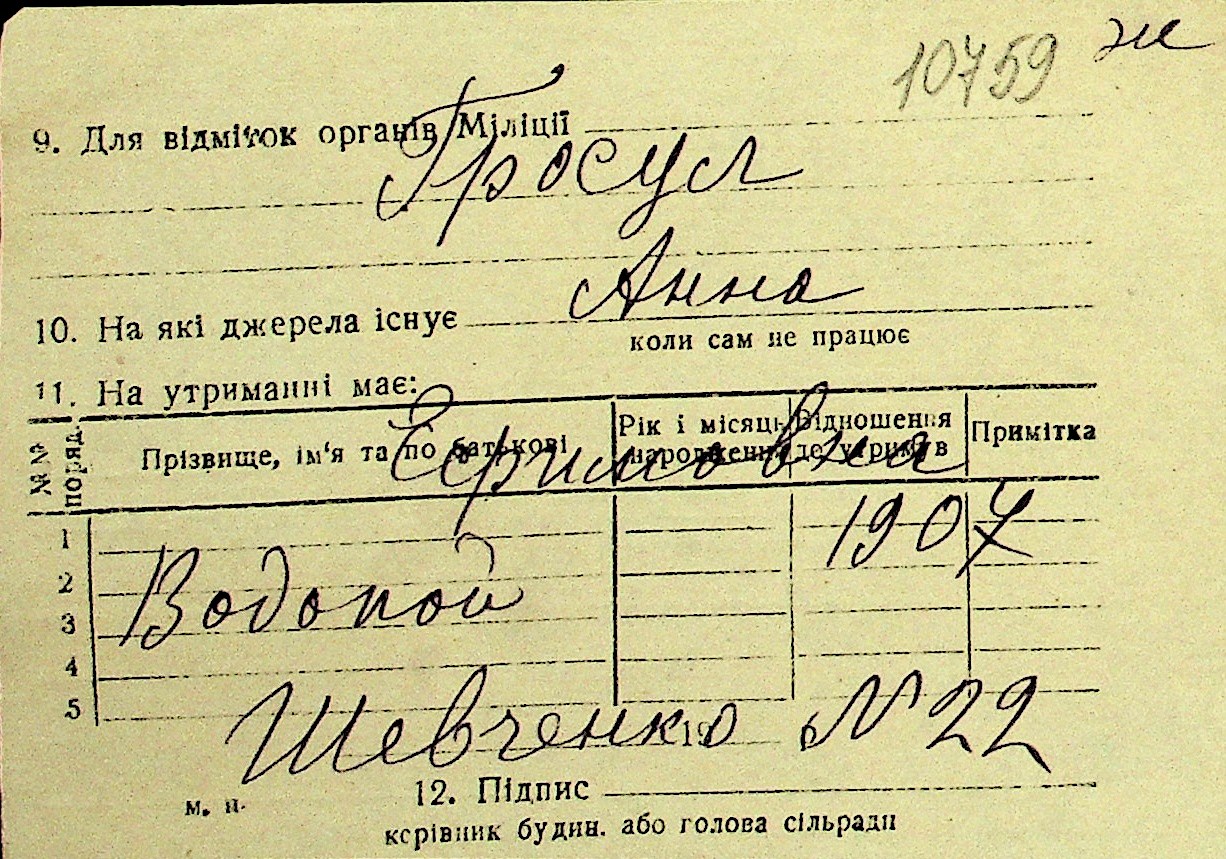 10759 ж
9. Для відміток органів Міліції
Гросул
Анна
10. На які джерела існує
коли сам не працює
11. На утриманні має:
№№ поряд. Прізвище, ім'я та по батькові Рік і місяць народження Відношення до утримів Примітка
Єфимовна
1 1907
2
Водопой
3
4
5
Шевченко 19 №22
м. п. 12. Підпис
керівник будин. або голова сільради